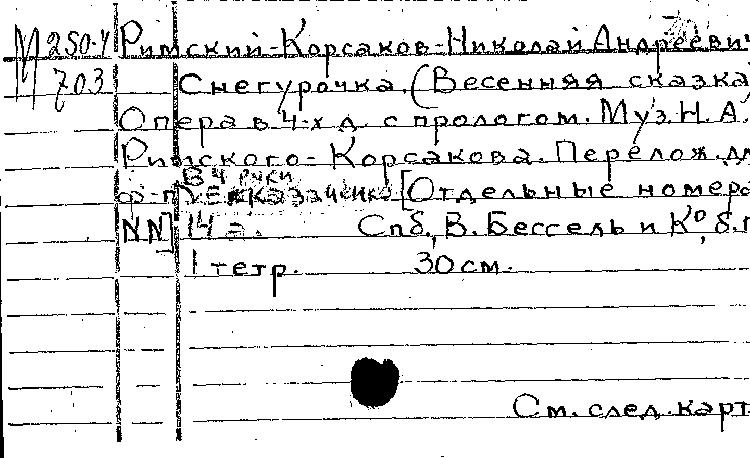 М 250.4 Римский-Корсаков-Николай Андреевич
703 Снегурочка. (Весенняя сказка)
Опера в 4-х д. с прологом. Муз. Н. А.
Римского-Корсакова. Перелож. дл
в 4 руки
ф-п. Е. Казаченко [Отдельные номера
NN] 14 а. Спб., В. Бессель и К°, б. г
1 тетр. 30 см.
См. след. карт